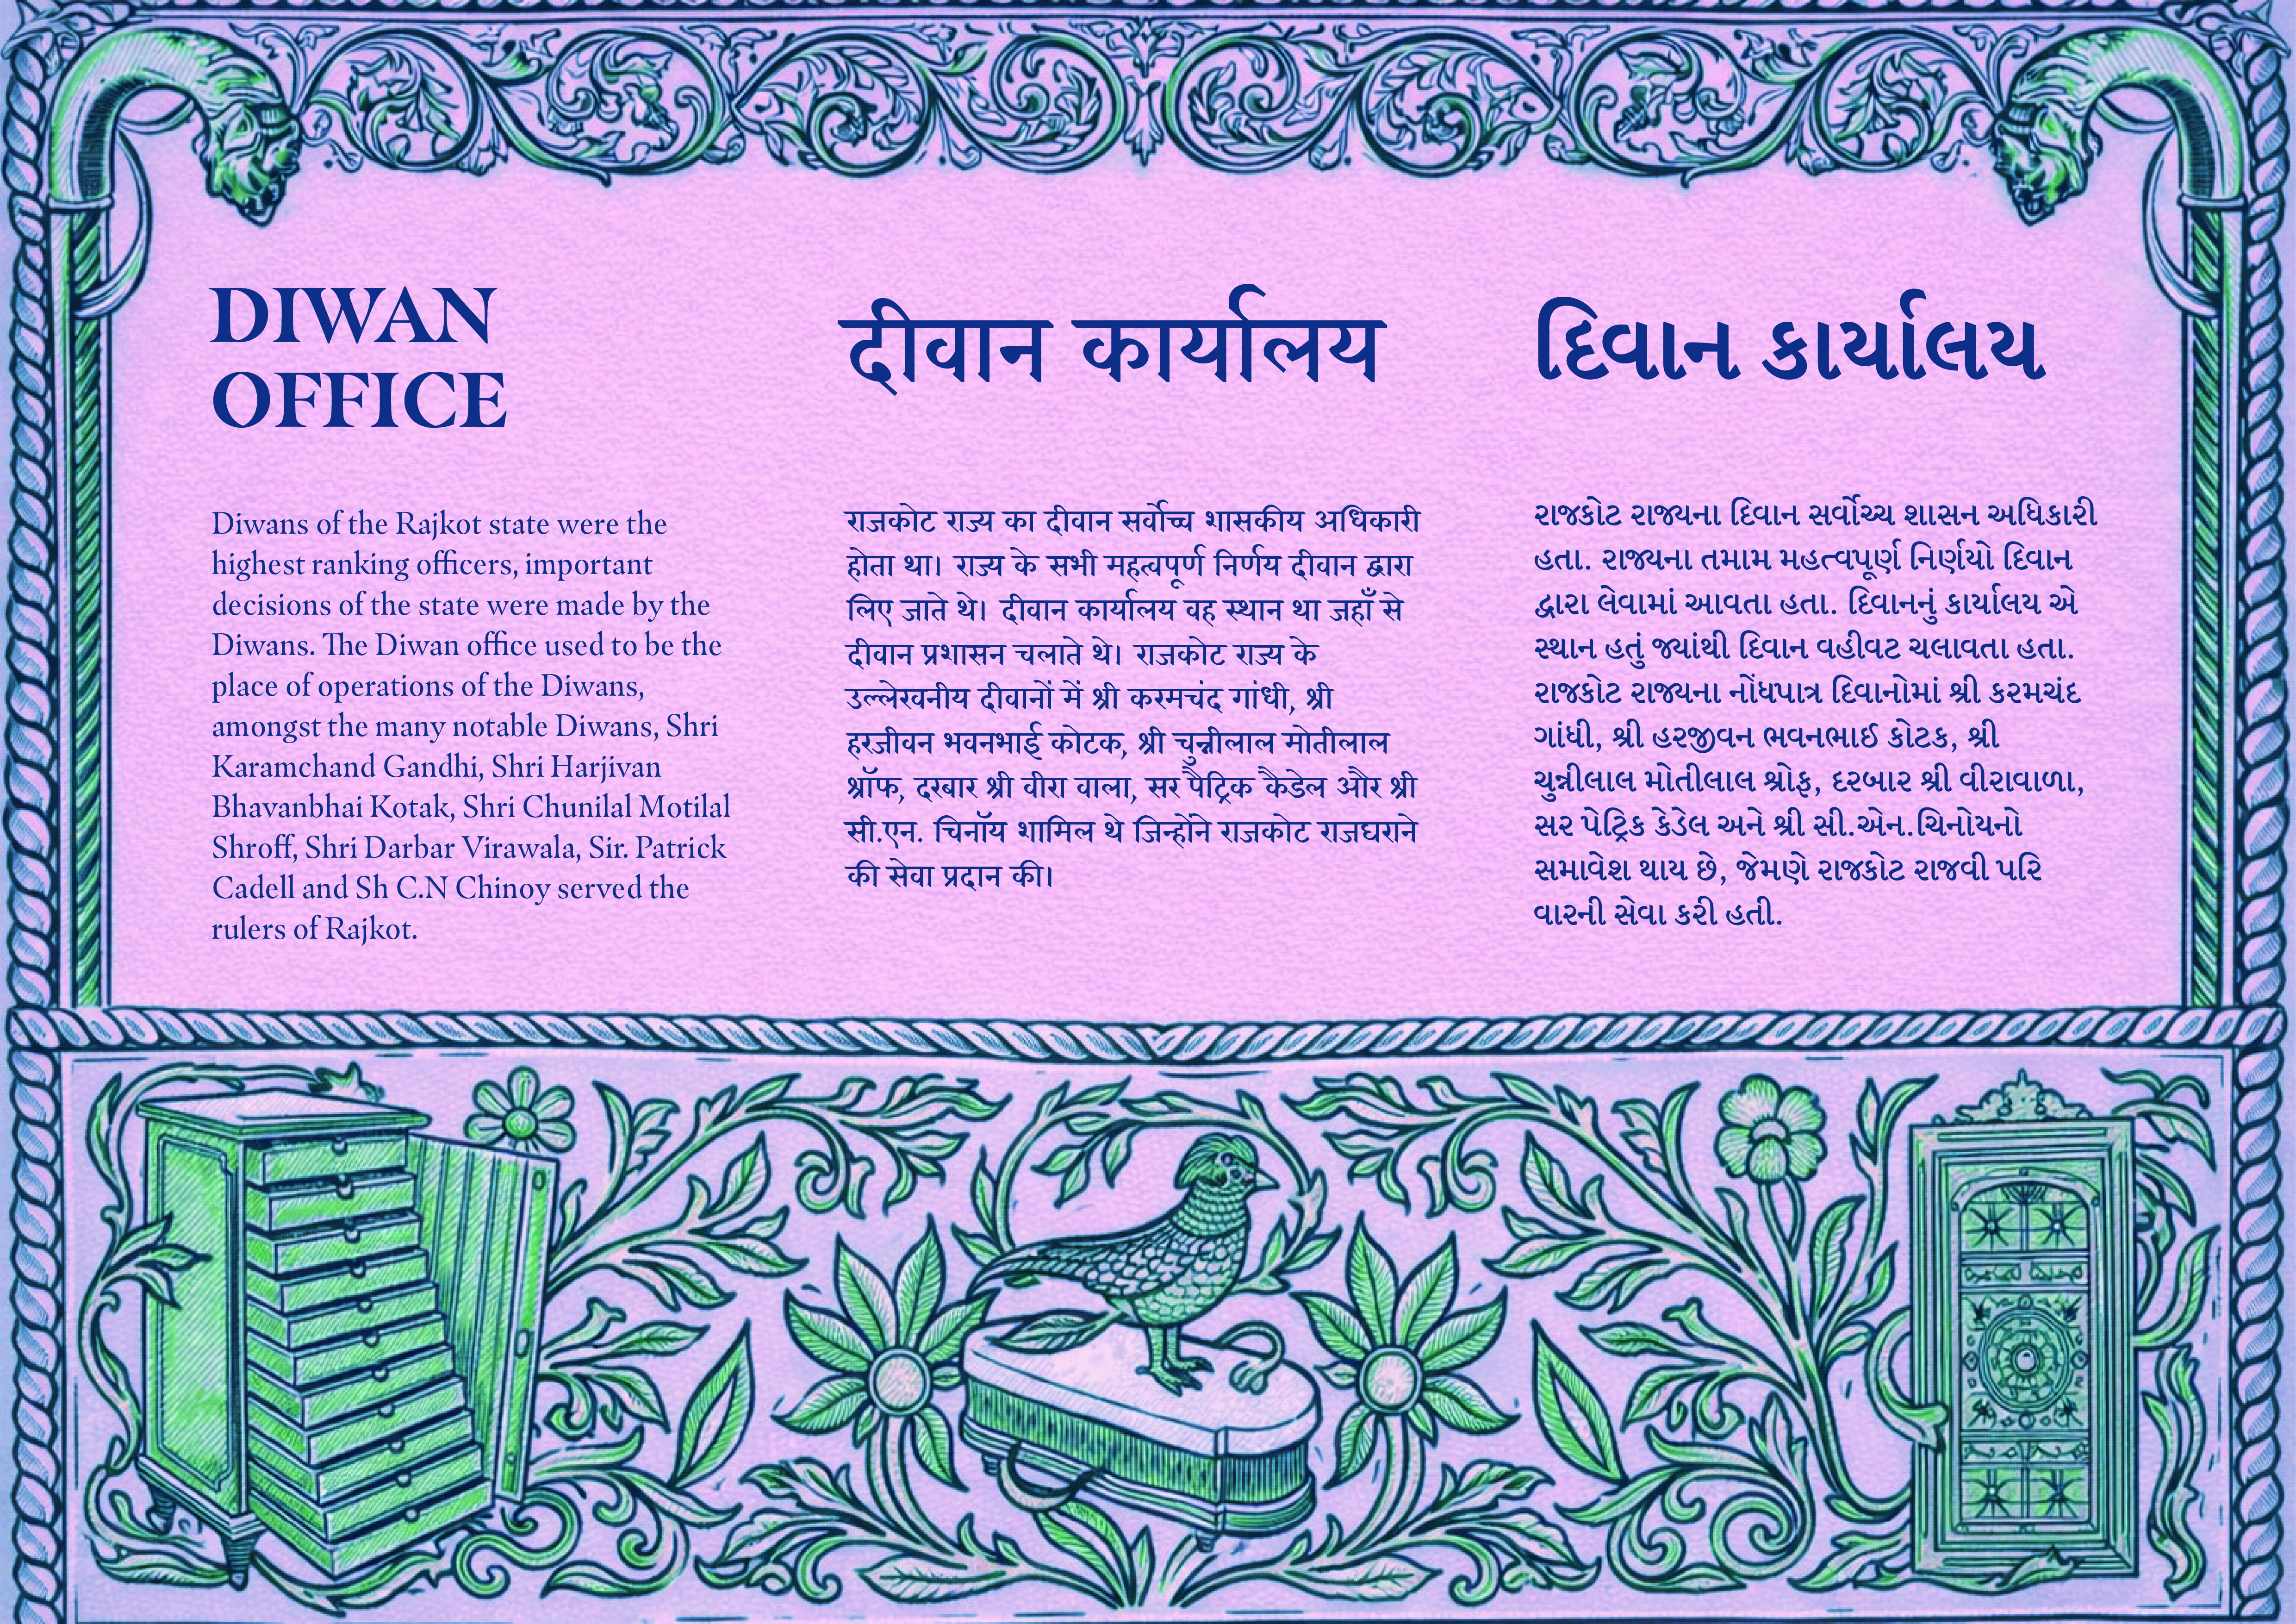 DIWAN
OFFICE
Diwans of the Rajkot state were the
highest ranking officers, important
decisions of the state were made by the
Diwans. The Diwan office used to be the
place of operations of the Diwans,
amongst the many notable Diwans, Shri
Karamchand Gandhi, Shri Harjivan
Bhavanbhai Kotak, Shri Chunilal Motilal
Shroff, Shri Darbar Virawala, Sir. Patrick
Cadell and Sh C.N Chinoy served the
rulers of Rajkot.
दीवान कार्यालय
राजकोट राज्य का दीवान सर्वोच्च शासकीय अधिकारी
होता था। राज्य के सभी महत्वपूर्ण निर्णय दीवान द्वारा
लिए जाते थे। दीवान कार्यालय वह स्थान था जहाँ से
दीवान प्रशासन चलाते थे। राजकोट राज्य के
उल्लेखनीय दीवानों में श्री करमचंद गांधी, श्री
हरजीवन भवनभाई कोटक, श्री चुन्नीलाल मोतीलाल
श्रॉफ, दरबार श्री वीरा वाला, सर पैट्रिक कैडेल और श्री
सी.एन. चिनॉय शामिल थे जिन्होंने राजकोट राजघराने
की सेवा प्रदान की।
દિવાન કાર્યાલય
રાજકોટ રાજ્યના દિવાન સર્વોચ્ચ શાસન અધિકારી
હતા. રાજ્યના તમામ મહત્વપૂર્ણ નિર્ણયો દિવાન
દ્વારા લેવામાં આવતા હતા. દિવાનનું કાર્યાલય એ
સ્થાન હતું જ્યાંથી દિવાન વહીવટ ચલાવતા હતા.
રાજકોટ રાજ્યના નોંધપાત્ર દિવાનોમાં શ્રી કરમચંદ
ગાંધી, શ્રી હરજીવન ભવનભાઈ કોટક, શ્રી
ચુન્નીલાલ મોતીલાલ શ્રોફ, દરબાર શ્રી વીરાવાળા,
સર પેટ્રિક કેડેલ અને શ્રી સી.એન.ચિનોયનો
સમાવેશ થાય છે, જેમણે રાજકોટ રાજવી પરિ
વારની સેવા કરી હતી.